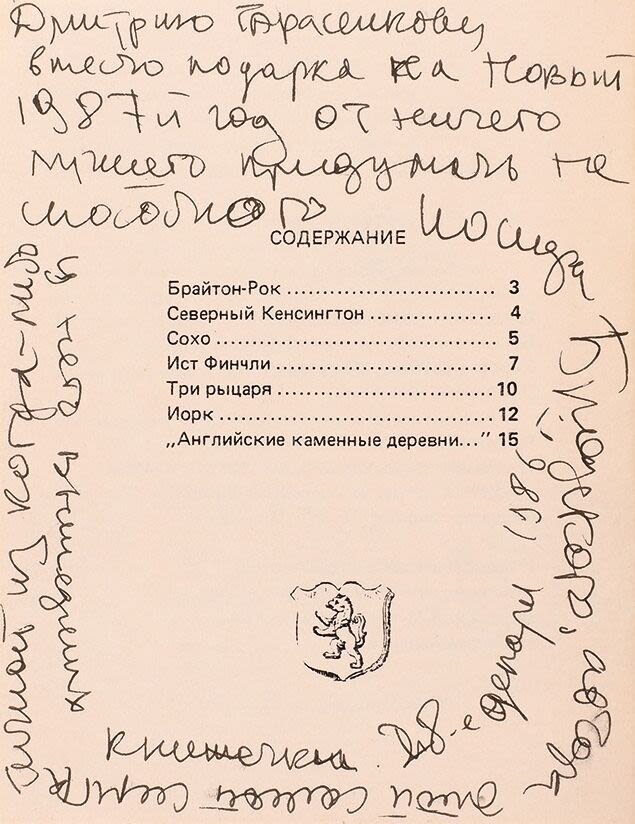 Дмитрию Тарасенкову
вместо подарка на Новый
1987й год от ничего
лучшего придумать не
способного Иосифа
Бродского, автора
этой самой симпа
тичной из когда-либо
у него вышедших
книжечки. 28-е декабря 1986
СОДЕРЖАНИЕ
Брайтон-Рок ........................... 3
Северный Кенсингтон ............... 4
Сохо .................................... 5
Ист Финчли ............................ 7
Три рыцаря ............................ 10
Иорк .................................... 12
„Английские каменные деревни...” 15